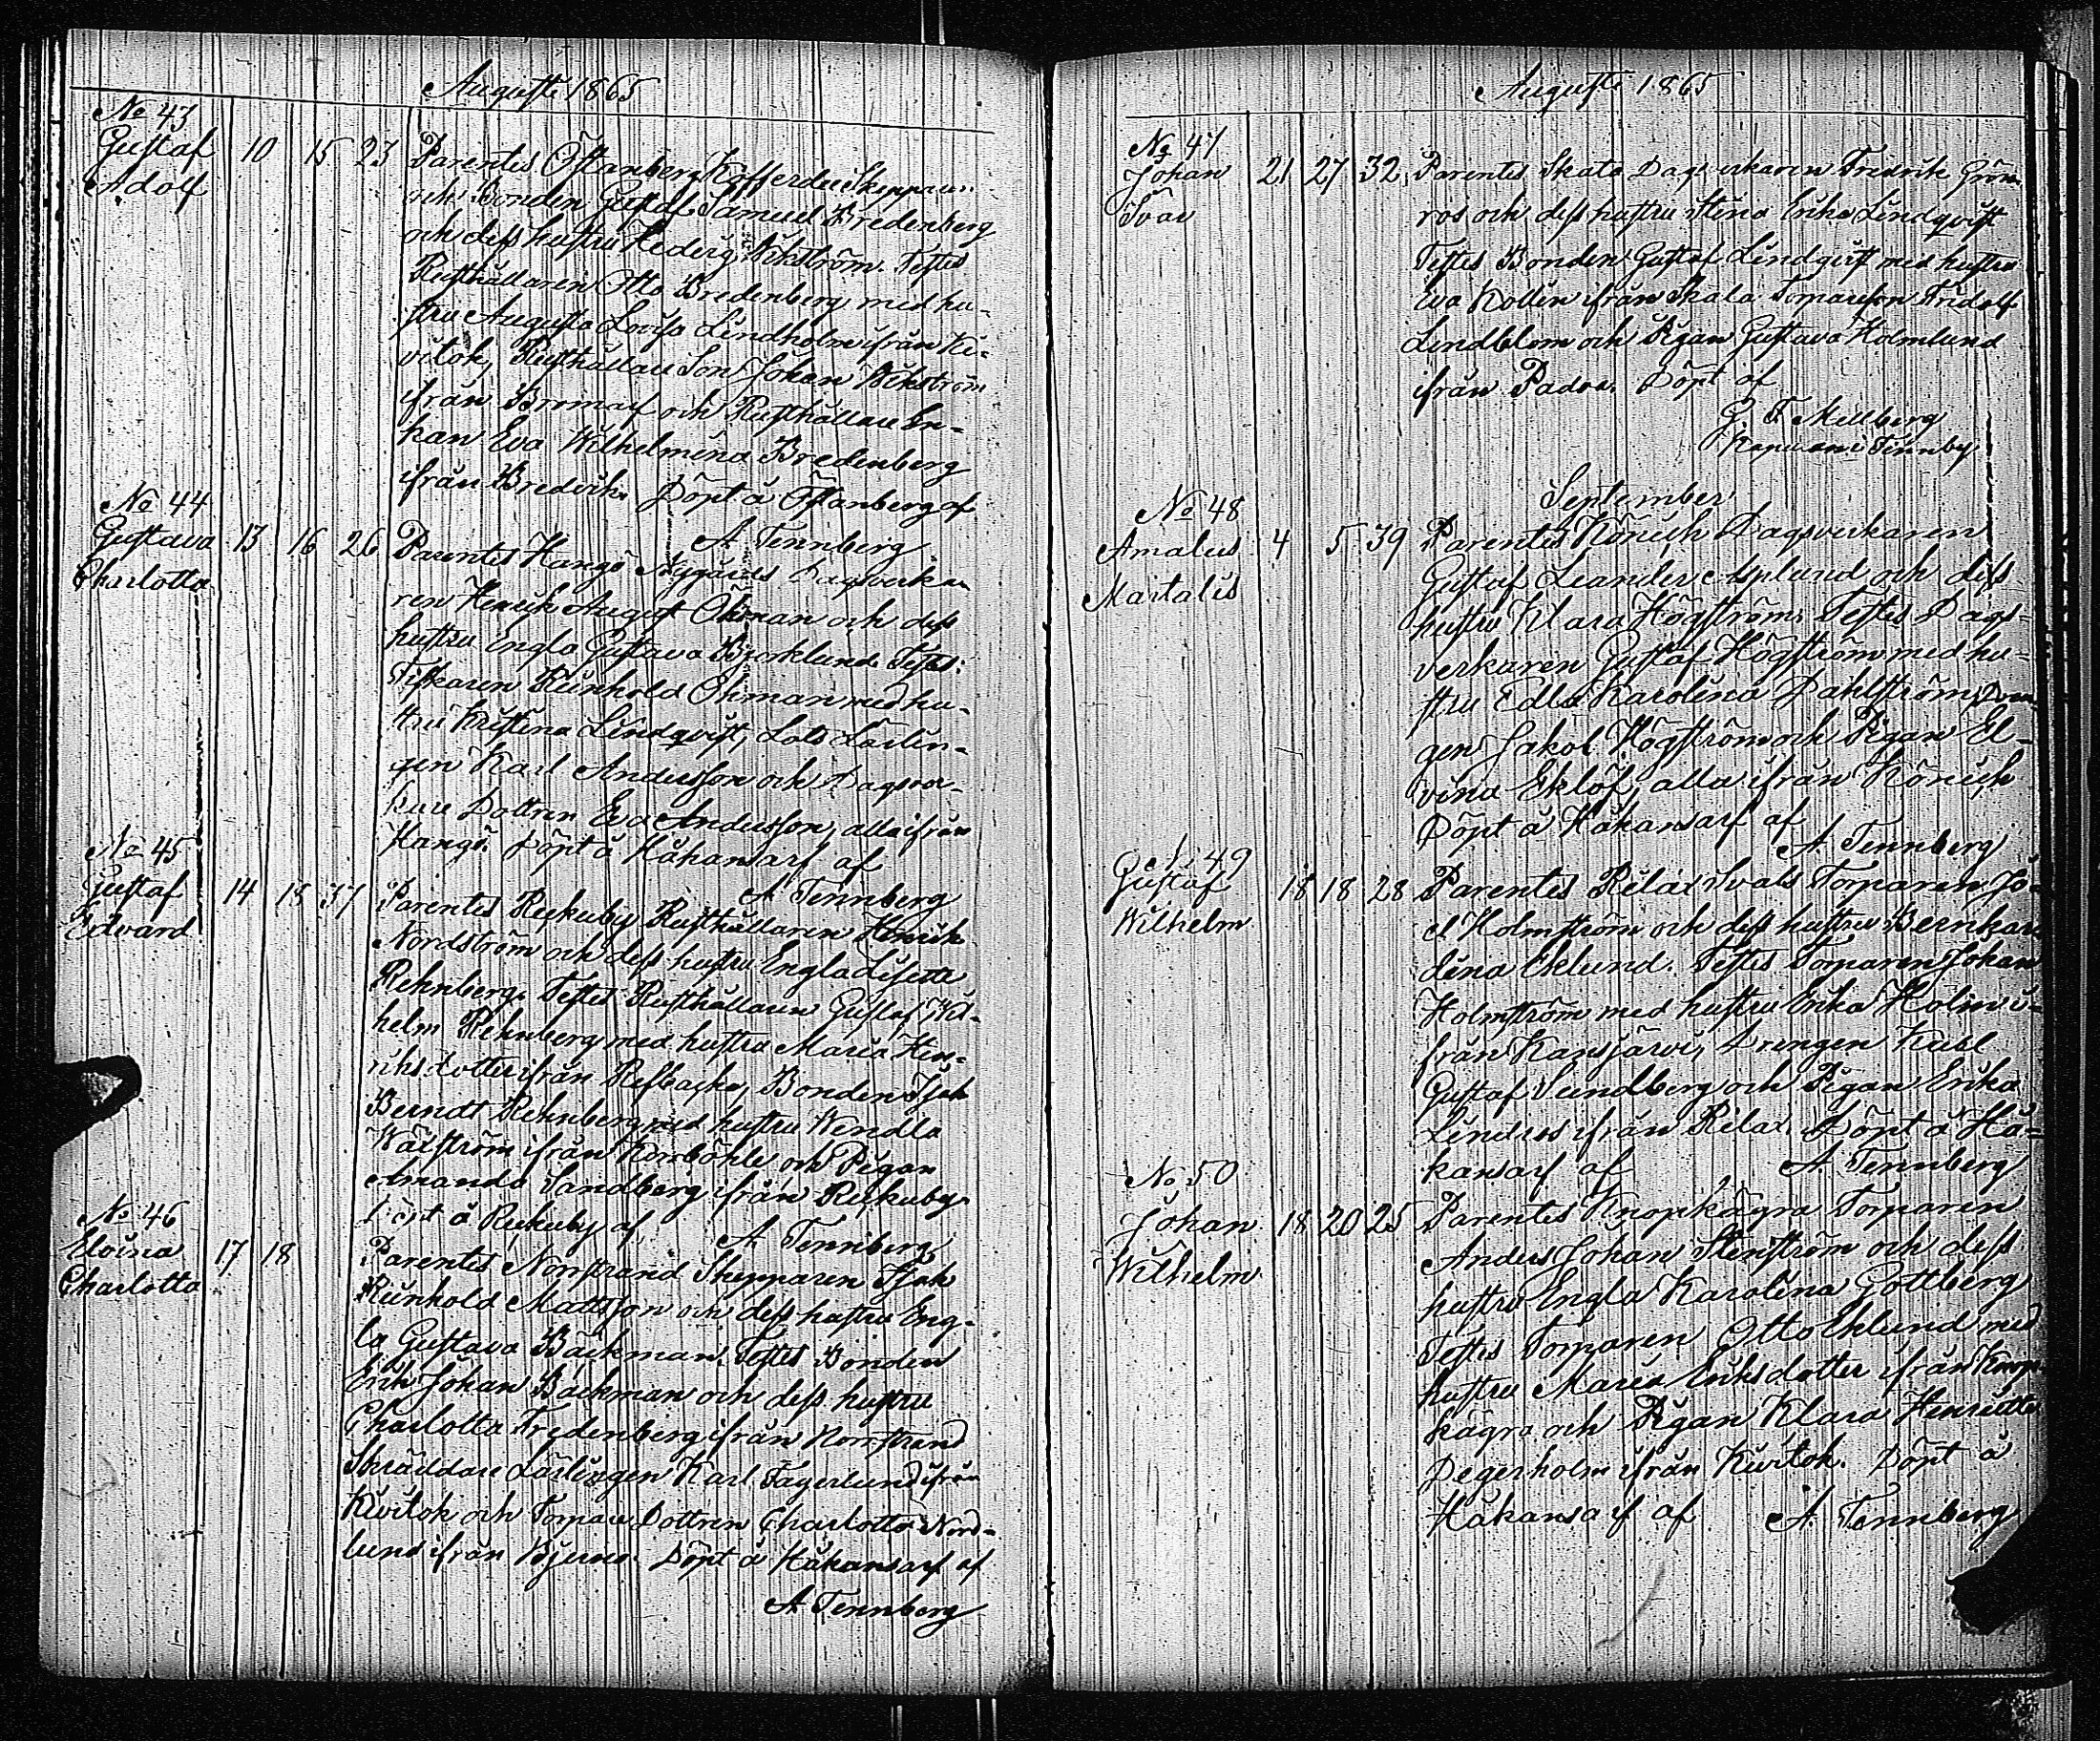 Augusti 1865
No 43
Gustaf 10 15 23 Parentes Östanberg Kofferdie Skepparen
Adolf
och Bonden Gustaf Samuel Bredenberg
och dess hustru Hedvig Wikström. Testes
Rusthållaren Otto Bredenberg med hu-
stru Augusta Lovisa Lindholm ifrån Ki-
vitok, Rusthållare Son Johan Wikström
ifrån Bromarf och Rusthållare En-
kan Eva Wilhelmina Bredenberg
ifrån Bredvik. Döpt å Östanberg af
A Tennberg
No 44
Gustava 13 16 26 Parentes Hangö Nygårds Dagsverka-
Charlotta
ren Henrik August Öhman och dess
hustru Engla Gustava Bjorklund. Testes:
Fiskaren Reinhold Öhman med hu-
stru Kristina Lindqvist, Lots Lärlin-
gen Karl Andersson och Dagsver-
kare Dottren Eva Andersson, alla ifrån
Hangö. Döpt å Håkansarf af
A Tennberg
No 45
Gustaf 14 18 37 Parentes Rukuby Rusthållaren Henrik
Edvard
Nordström och dess hustru Engla Lisette
Rehnberg. Testes Rusthållaren Gustaf Wil-
helm Rehnberg med hustru Maria Hen-
riksdotter ifrån Refbacka, Bonden Isak
Berndt Rehnberg med hustru Wendla
Wäström ifrån Korsböhle och Pigan
Amanda Sandberg ifrån Rukuby.
Döpt å Rukuby af
A Tennberg
No 46
Elvina 17 18 Parentes Norrstrand Skepparen Isak
Charlotta
Reinhold Mattsson och dess hustru Eng-
la Gustava Bäckman. Testes Bonden
Erik Johan Bäckman och dess hustru
Charlotta Fredenberg ifrån Norrstrand
Skräddare Lärlingen Karl Fagerlund ifrån
Kivitok och Torpare Dottren Charlotta Nord-
lund ifrån Bjerno. Döpt å Håkansarf af
A Tennberg
Augusti 1865
No 47
Johan 21 27 32 Parentes Skata Dagsverkaren Fredrik Grön
Ivar
ros och dess hustru Stina Erika Lindqvist
Testes Bonden Gustaf Lindqvist med hustru
Eva Kollin ifrån Skata Torpareson Fridolf
Lindblom och Pigan Gustava Holmlund
ifrån Padva. Döpt af
G. F. Mellberg
Kapellan i Tennby
September
No 48
Amalius 4 5 39 Parentes Könick Dagsverkaren
Maitalis
Gustaf Leander Asplund och dess
hustru Klara Högström. Testes Dags-
verkaren Gustaf Högström med hu-
stru Edla Karolina Dahlström, Dren-
gen Jakob Högström och Pigan El-
vina Eklöf, alla ifrån Könick
Döpt å Håkansarf af
A Tennberg
No 49
Gustaf 18 18 28 Parentes Rilax Svals Torparen Jo-
Wilhelm
el Holmström och dess hustru Bernhar
dina Eklund. Testes Torparen Johan
Holmström med hustru Erika Holm i-
från Kansjärvi, Drengen Karl
Gustaf Sundberg och Pigan Erika
Lindros ifrån Rilax. Döpt å Hå-
kansarf af
A Tennberg
No 50
Johan 18 20 25 Parentes Knopkägra Torparen
Wilhelm
Anders Johan Stenström och dess
hustru Engla Karolina Gottberg
Testes Torparen Otto Eklund med
hustru Maria Eriksdotter ifrån Knop
kägra och Pigan Klara Henriette
Degerholm ifrån Kivitok. Döpt å
Håkansarf af
A. Tennberg